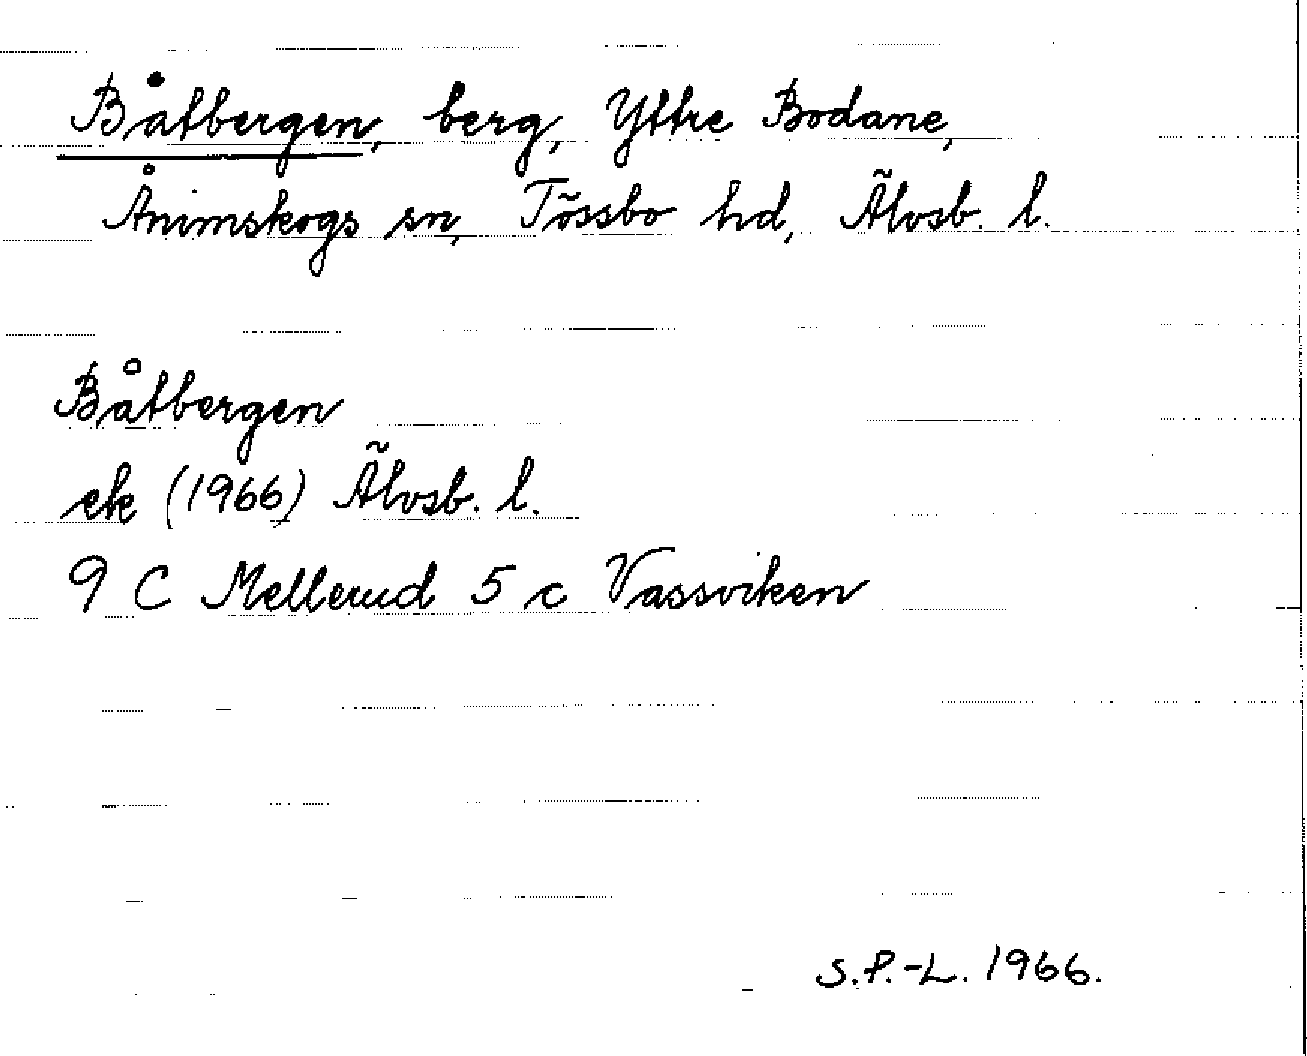 Båtbergen, berg, Yttre Bodane,
Ånimskogs sn, Tössbo hd, Älvsb. l.
Båtbergen
ek (1966) Älvsb. l.
9 C Mellerud 5 c Vassviken
S.P.-L. 1966.